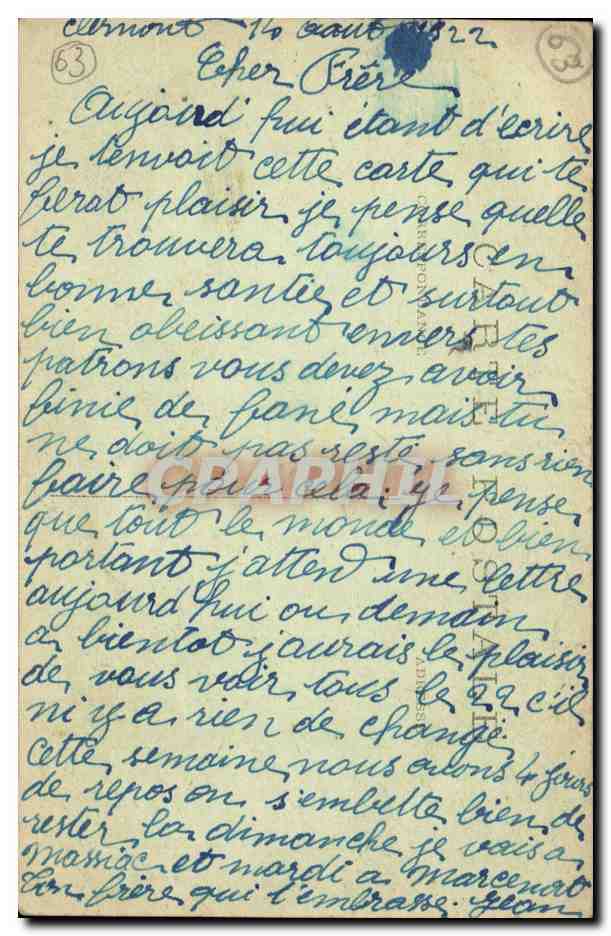 63
63
clermont 14 aout 1922
Cher Frère
Aujourd'hui étant d'écrire
je t'envoit cette carte qui te
ferat plaisir je pense quelle
te trouvera toujours en
bonne santée et surtout
bien obeissant envers tes
patrons vous devez avoir
finie de fané mais tu
ne doit pas resté sans rien
faire pour cela. pense
que tout le monde et bien
portant j'attend une lettre
aujourd'hui ou demain
a bientot j'aurais le plaisir
de vous voir tous le 22 c'il
ni y a rien de changé
cette semaine nous avons 4 jours
de repos on s'embette bien de
rester la dimanche je vais a
Massiac et mardi a Marcenat
Ton frère qui t'embrasse. Jean
CARTE POSTALE
CORRESPONDANCE
ADRESSE
CRAPHIL